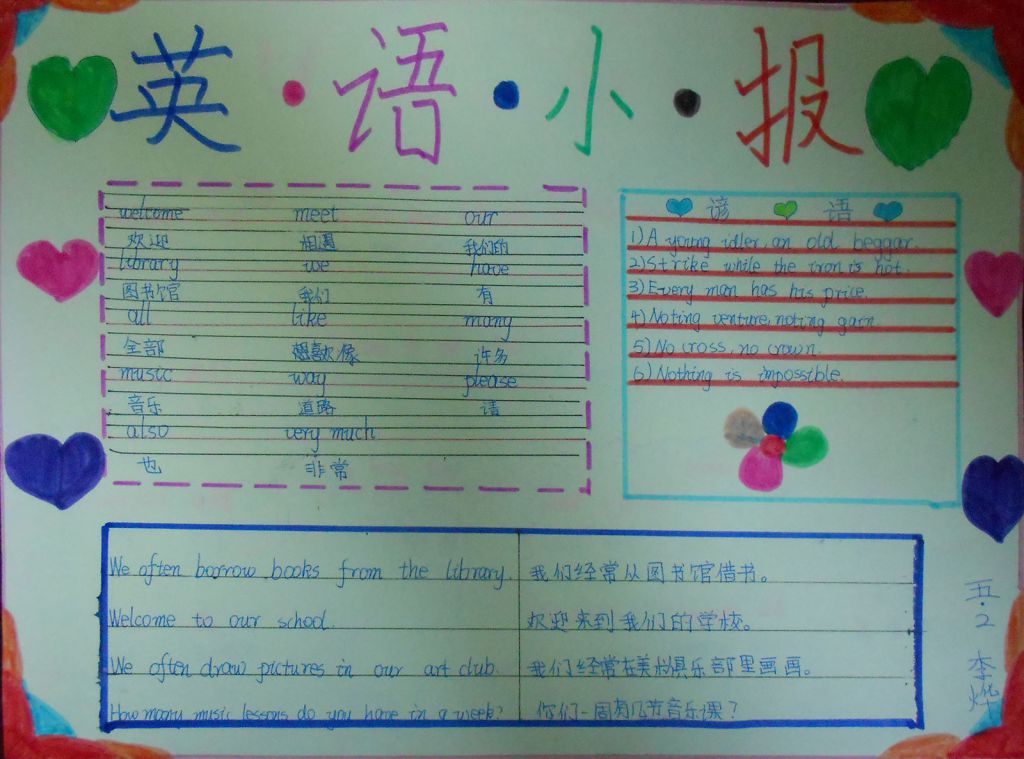 英·语·小·报
welcome meet our
欢迎 相遇 我们的
library we have
图书馆 我们 有
all like many
全部 喜欢像 许多
music way please
音乐 道路 请
also very much
也 非常
谚 语
1) A young idler, an old beggar.
2) Strike while the iron is hot.
3) Every man has his price.
4) Noting venture, noting gain
5) No cross, no crown.
6) Nothing is impossible.
We often borrow books from the library. 我们经常从图书馆借书。
Welcome to our school. 欢迎来到我们的学校。
We often draw pictures in our art club. 我们经常在美术俱乐部里画画。
How many music lessons do you have in a week? 你们一周有几节音乐课？
五·2 李烨